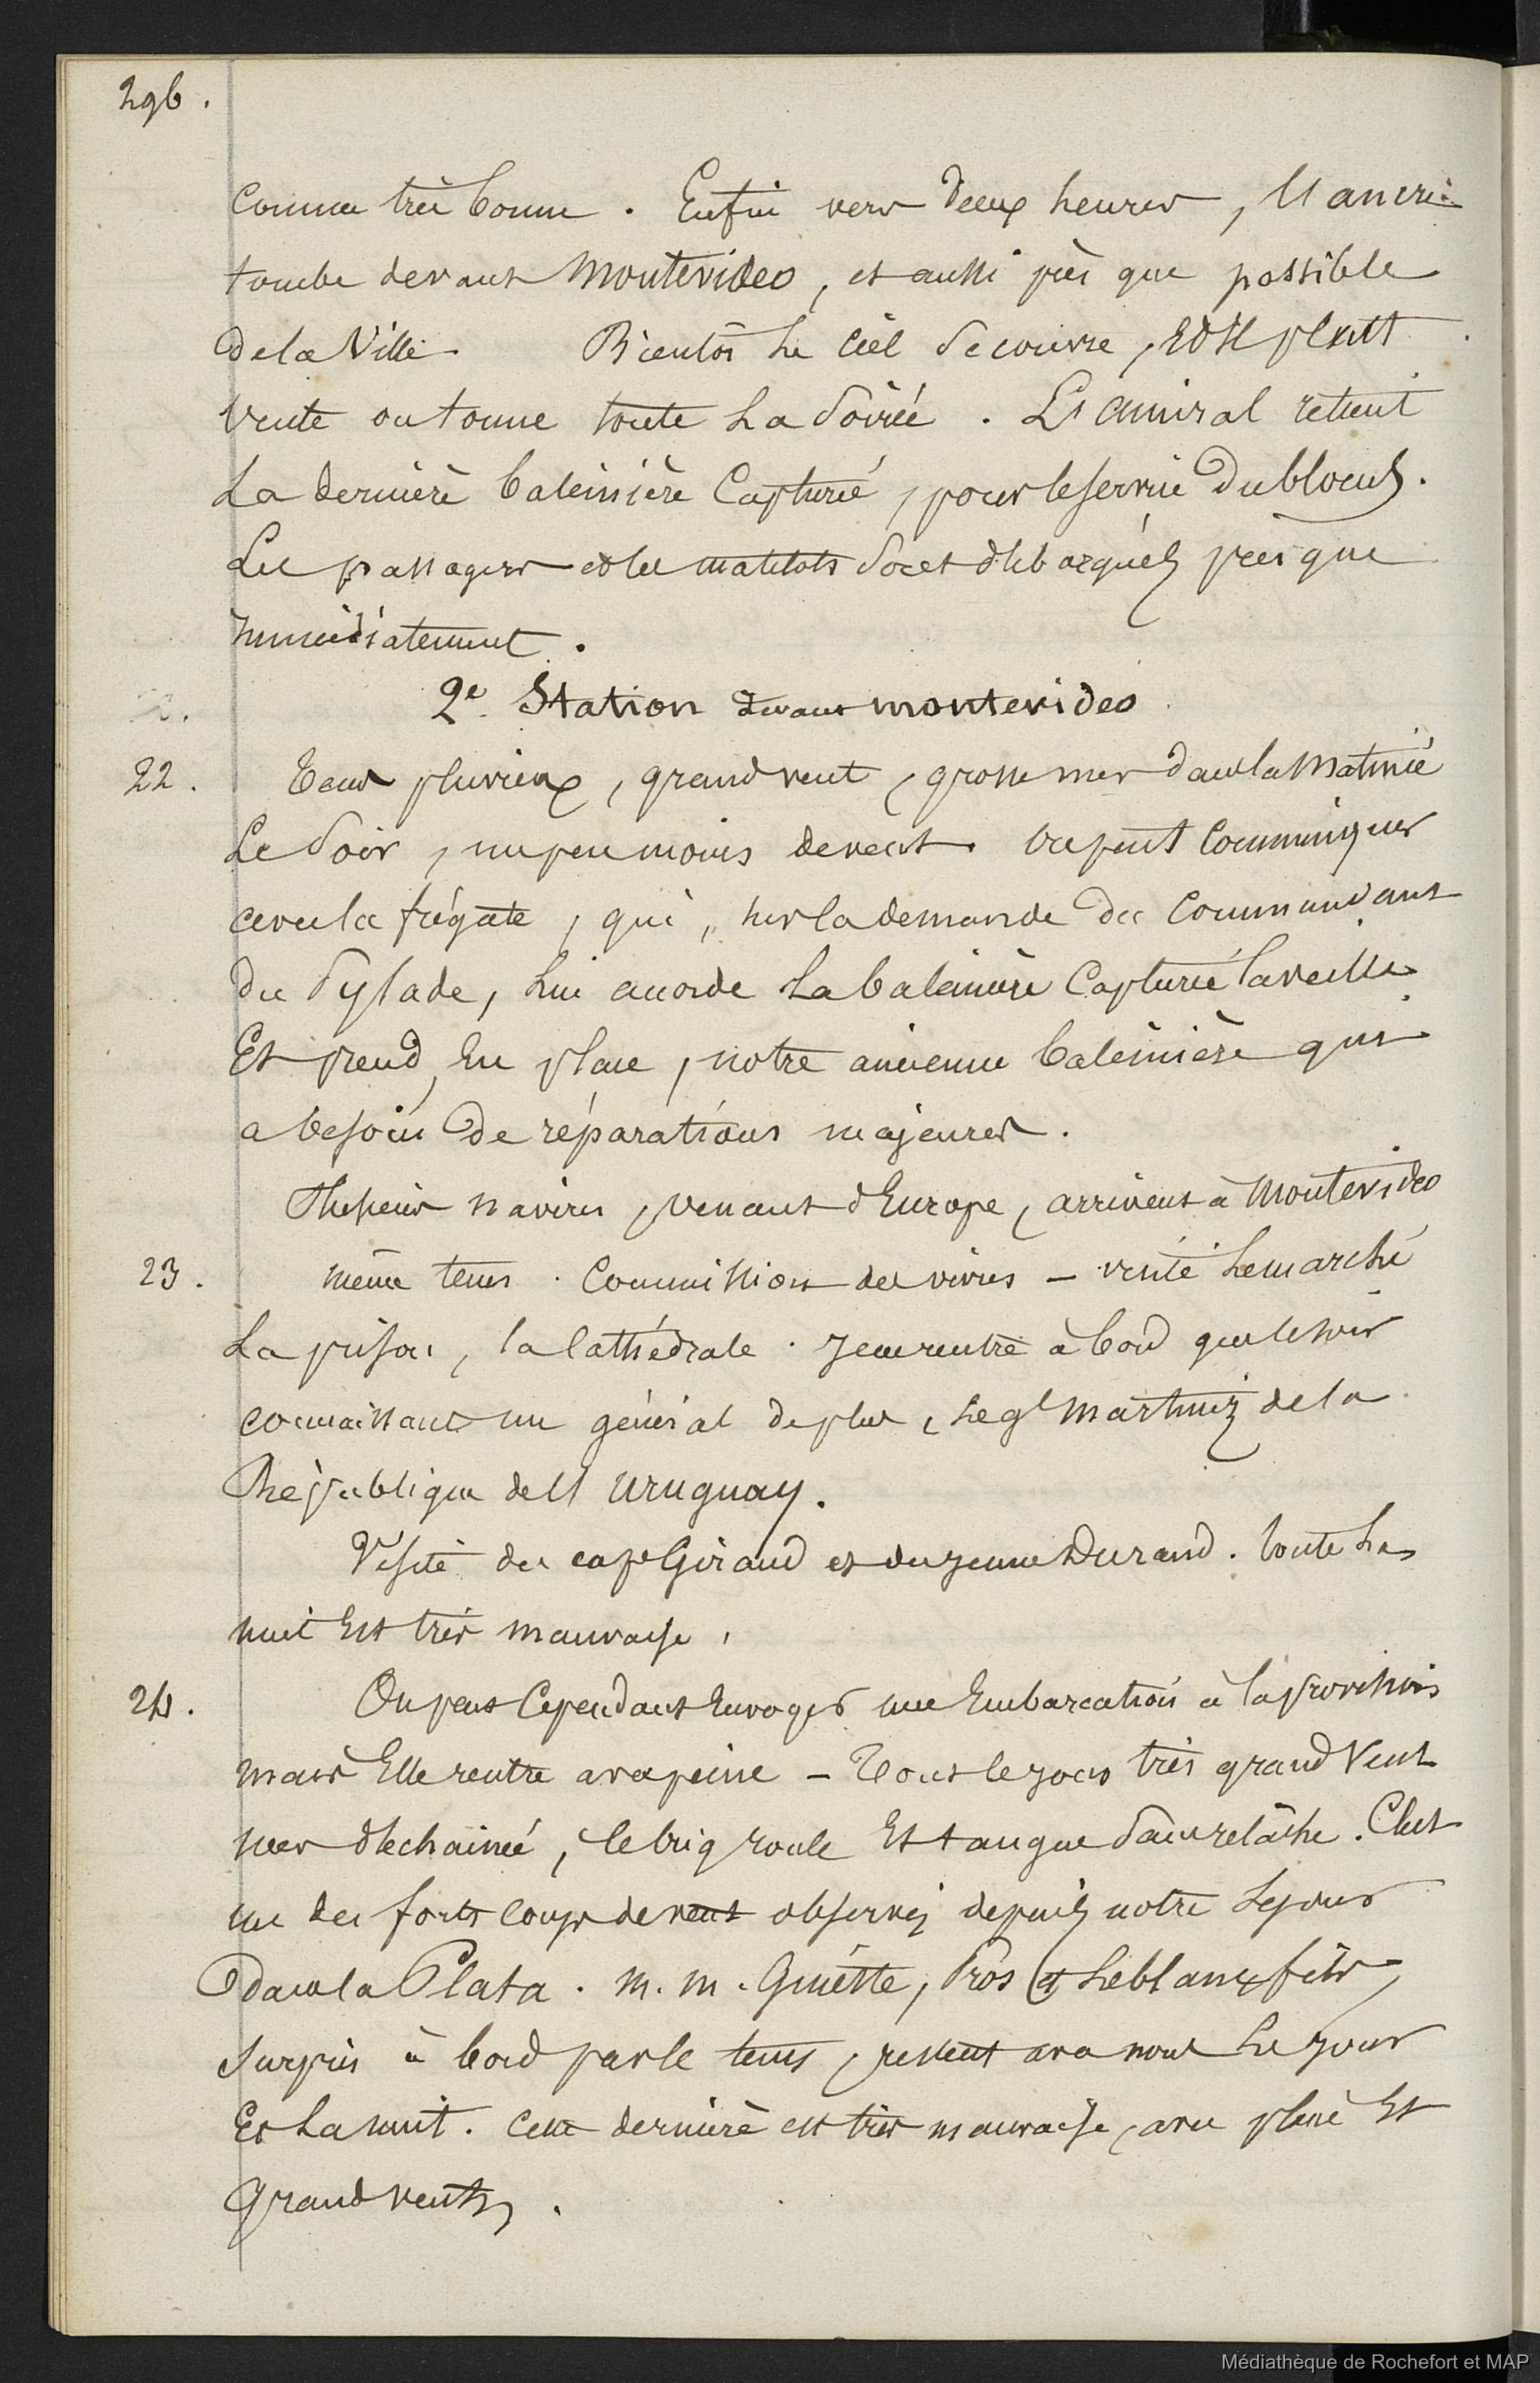 296.
comme très bonne. Enfin vers deux heures, l'ancre
tombe devant Montevideo, et aussi près que possible
de la Ville. Bientôt le ciel se couvre, et il pleut
vente ou tonne toute la soirée. L'amiral retient
la dernière baleinière capturée, pour le service du blocus.
Les passagers et les matelots sont débarqués presque
immédiatement.
2e. Station devant montevideo
22. Tems pluvieux, grand vent, grosse mer dans la matinée
Le soir, un peu moins de vent. On peut communiquer
avec la frégate, qui, sur la demande du Commandant
du Pylade, lui accorde la baleinière capturée la veille
Et prend, en place, notre ancienne baleinière qui
a besoin de réparations majeures.
Plusieurs navires, venant d'Europe, arrivent à Montevideo
23. même tems. Commission des vivres – visité le marché
La prison, la Cathédrale. Je ne rentre à bord que le soir
connaissant un général de plus, le gl Martinez de la
République de l'Uruguay.
Visite du cape Giraud et du jeune Durand. Toute la
nuit est très mauvaise,
24. On peut cependant envoyer une embarcation à la provision
mais Elle rentre avec peine – Tout le jour très grand Vent
mer déchainée, le brig roule et tangue sans relâche. C'est
un des forts coups de vent observés depuis notre séjour
dans la Plata. M. M. Guiette, Pros et Leblanc fils,
surpris à bord par le tems, restent avec nous le jour
Et la nuit. Cette dernière est très mauvaise, avec pluie et
Grand vent.
Médiathèque de Rochefort et MAP